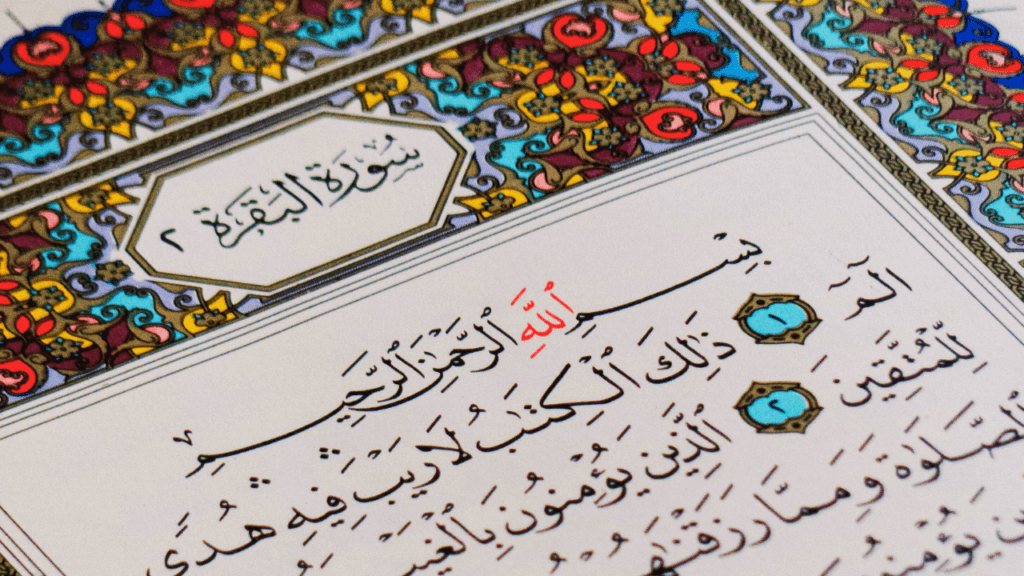 سُورَةُ الْبَقَرَةِ ٢
بِسْمِ ٱللَّهِ ٱلرَّحْمَٰنِ ٱلرَّحِيمِ
الٓمٓ ١ ذَٰلِكَ ٱلْكِتَٰبُ لَا رَيْبَ فِيهِ هُدًى
لِّلْمُتَّقِينَ ٢ ٱلَّذِينَ يُؤْمِنُونَ بِٱلْغَيْبِ
ٱلصَّلَوٰةَ وَمِمَّا رَزَقْنَٰهُمْ
يُؤْمِنُونَ